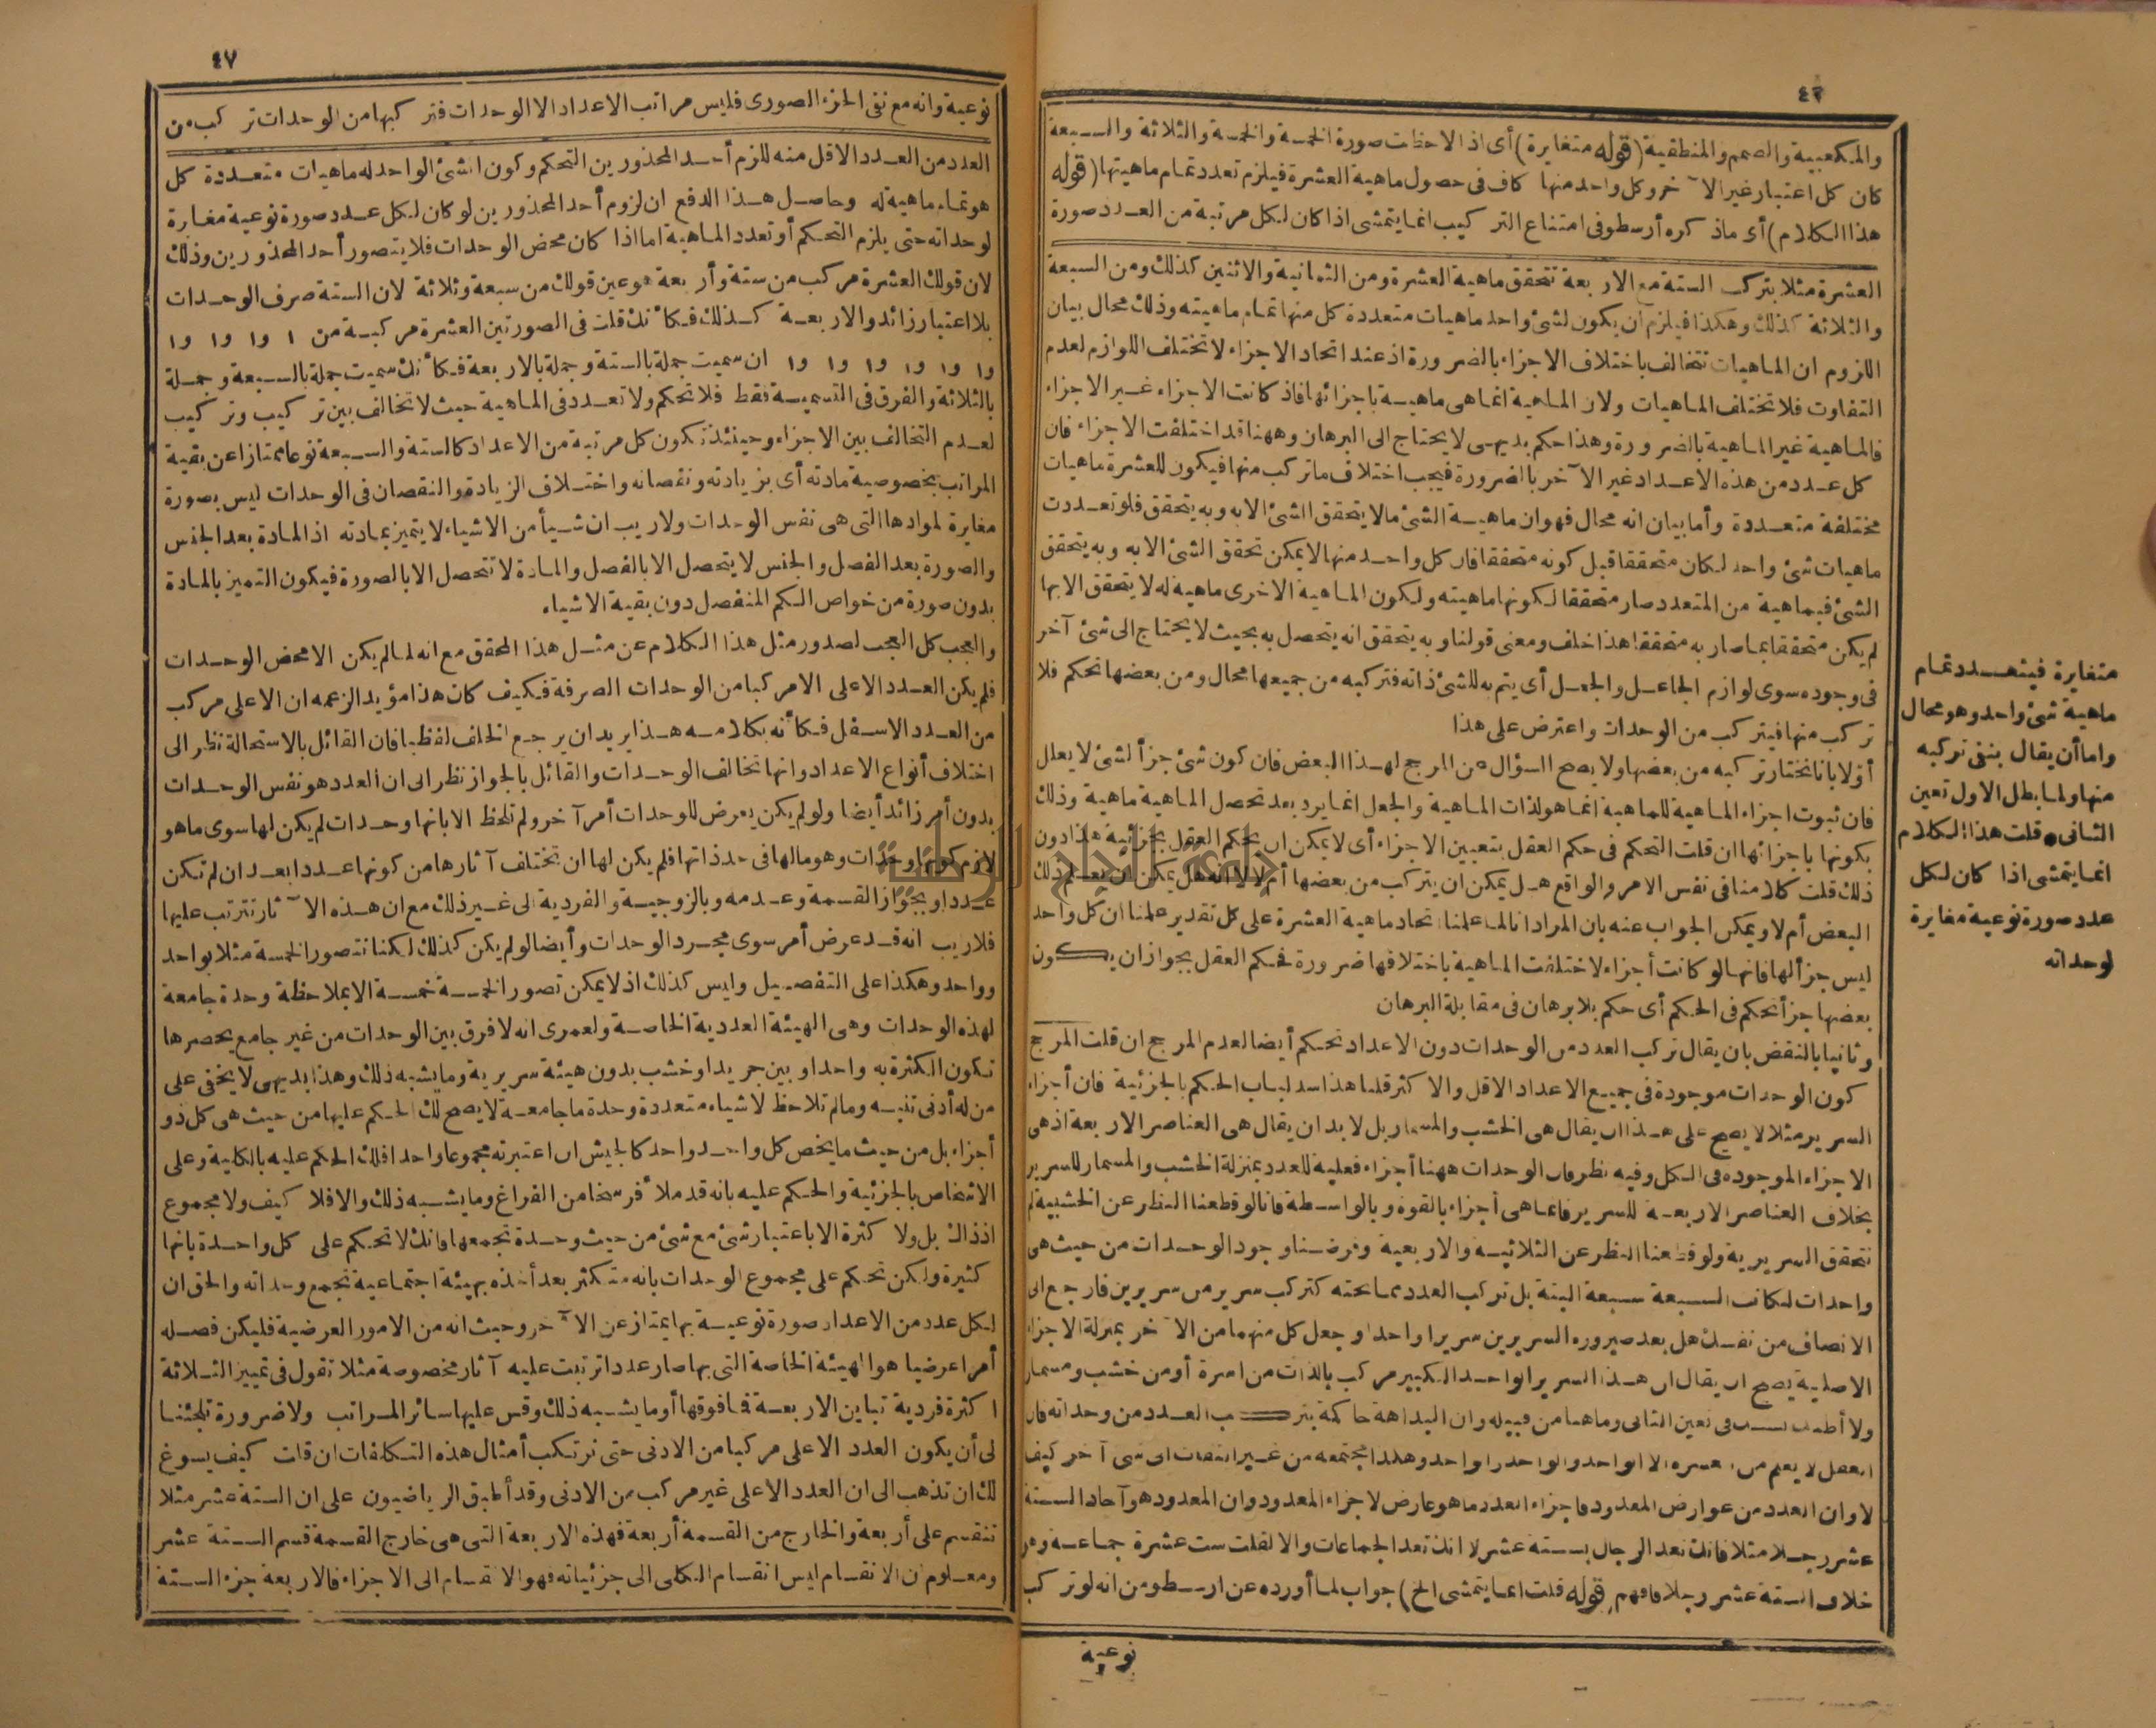 ٤٦
والمكعبية والصمم والمنطقية (قوله متغايرة) أى اذا لاحظت صورة الخمسة والخمسة والثلاثة والسبعة
كان كل اعتبار غير الآخر وكل واحد منها كاف فى حصول ماهية العشرة فيلزم تعدد تمام ماهيتها (قوله
هذا الكلام) أى ماذكره أرسطو فى امتناع التركيب انما يتمشى اذا كان لكل مرتبة من العدد صورة
العشرة مثلا بتركب الستة مع الاربعة تتحقق ماهية العشرة ومن الثمانية والاثنين كذلك ومن السبعة
والثلاثة كذلك وهكذا فيلزم أن يكون لشئ واحد ماهيات متعددة كل منها تمام ماهيته وذلك محال بيان
اللزوم ان الماهيات تتخالف باختلاف الاجزاء بالضرورة اذ عند اتحاد الاجزاء لا تختلف اللوازم لعدم
التفاوت فلا تختلف الماهيات ولان الماهية انما هى ماهية باجزائها فاذ كانت الاجزاء غير الاجزاء
فالماهية غير الماهية بالضرورة وهذا حكم بديهى لا يحتاج الى البرهان وههنا قد اختلفت الاجزاء فان
كل عدد من هذه الاعداد غير الآخر بالضرورة فيجب اختلاف ما تركب منها فيكون للعشرة ماهيات
مختلفة متعددة وأما بيان انه محال فهو ان ماهية الشئ مالا يتحقق الشئ الا به وبه يتحقق فلو تعددت
ماهيات شئ واحد لكان متحققا قبل كونه متحققا فان كل واحد منها لا يمكن تحقق الشئ الا به وبه يتحقق
الشئ فبماهية من المتعدد صار متحققا لكونها ماهيته ولكون الماهية الاخرى ماهية له لا يتحقق الا بها
لم يكن متحققا بما صار به متحققا هذا خلف ومعنى قولنا وبه يتحقق انه يتحصل به بحيث لا يحتاج الى شئ آخر
فى وجوده سوى لوازم الجاعل والجعل أى يتم به للشئ ذاته فتركبه من جميعها محال ومن بعضها تحكم فلا
تركب منها فيتركب من الوحدات واعترض على هذا
أولا بانا نختار تركبه من بعضها ولا يصح السؤال عن المرجح لهذا البعض فان كون شئ جزأ لشئ لا يعلل
فان ثبوت اجزاء الماهية للماهية انما هو لذات الماهية والجعل انما يرد بعد تحصل الماهية ماهية وذلك
بكونها باجزائها ان قلت التحكم فى حكم العقل بتعيين الاجزاء أى لا يمكن ان يحكم العقل بجزئية هذا دون
ذلك قلت كلامنا فى نفس الامر والواقع هل يمكن ان يتركب من بعضها أم لا لا انه هل يمكن ان يعلم ذلك
البعض أم لا ويمكن الجواب عنه بان المراد انا لما علمنا اتحاد ماهية العشرة على كل تقدير علمنا ان كل واحد
ليس جزأ لها فانها لو كانت أجزاء لاختلفت الماهية باختلافها ضرورة فحكم العقل بجواز ان يكون
بعضها جزأ تحكم فى الحكم أى حكم بلا برهان فى مقابلة البرهان
وثانيا بالنقض بان يقال تركب العدد من الوحدات دون الاعداد تحكم أيضا لعدم المرجح ان قلت المرجح
كون الوحدات موجودة فى جميع الاعداد الاقل والاكثر قلنا هذا سد لباب الحكم بالجزئية فان أجزاء
السرير مثلا لا يصح على هذا ان يقال هى الخشب والمسمار بل لا بد ان يقال هى العناصر الاربعة اذ هى
الاجزاء الموجودة فى الكل وفيه نظر فان الوحدات ههنا أجزاء فعلية للعدد بمنزلة الخشب والمسمار للسرير
بخلاف العناصر الاربعة للسرير فانما هى أجزاء بالقوة وبالواسطة فانا لو قطعنا النظر عن الخشبية لم
تتحقق السريرية ولو قطعنا النظر عن الثلاثية والاربعية وفرضنا وجود الوحدات من حيث هى
واحدات لكانت السبعة سبعة البتة بل تركب العدد مما تحته كتركب سرير من سريرين فارجع الى
الانصاف من نفسك هل بعد صيرورة السريرين سريرا واحدا وجعل كل منهما من الآخر بمنزلة الاجزاء
الاصلية يصح ان يقال ان هذا السرير الواحد الكبير مركب بالذات من اسرة أو من خشب ومسمار
ولا أظنك فى تعين الثانى وماهنا من قبيله وان البداهة حاكمة بتركب العدد من وحداته فان
العقل لا يعلم من العشرة الا الواحد والواحد والواحد وهكذا مجتمعة من غير التفات الى شئ آخر كيف
لا وان العدد من عوارض المعدود فاجزاء العدد ما هو عارض لاجزاء المعدود وان المعدود هو آحاد الستة
عشر رجلا مثلا فانك تعد الرجال بستة عشر لا انك تعد الجماعات والا لقلت ست عشرة جماعة وهو
خلاف الستة عشر رجلا فافهم (قوله قلت انما يتمشى الخ) جواب لما أورده عن ارسطو من انه لو تركب
نوعية
متغايرة فيتعدد تمام
ماهية شئ واحد وهو محال
واما أن يقال بنفى تركبه
منها ولما بطل الاول تعين
الثانى • قلت هذا الكلام
انما يتمشى اذا كان لكل
عدد صورة نوعية مغايرة
لوحداته
٤٧
نوعية وانه مع نفى الجزء الصورى فليس مراتب الاعداد الا الوحدات فتركبها من الوحدات تركب من
العدد من العدد الاقل منه للزم أحد المحذورين التحكم وكون الشئ الواحد له ماهيات متعددة كل
هو تمام ماهية له وحاصل هذا الدفع ان لزوم أحد المحذورين لو كان لكل عدد صورة نوعية مغايرة
لوحداته حتى يلزم التحكم أو تعدد الماهية اما اذا كان محض الوحدات فلا يتصور أحد المحذورين وذلك
لان قولك العشرة مركب من ستة وأربعة هو عين قولك من سبعة وثلاثة لان الستة صرف الوحدات
بلا اعتبار زائد والاربعة كذلك فكأنك قلت فى الصورتين العشرة مركبة من ١ و١ و١ و١
و١ و١ و١ و١ و١ و١ ان سميت جملة بالستة وجملة بالاربعة فكأنك سميت جملة بالسبعة وجملة
بالثلاثة والفرق فى التسمية فقط فلا تحكم ولا تعدد فى الماهية حيث لا تخالف بين تركيب وتركيب
لعدم التخالف بين الاجزاء وحينئذ تكون كل مرتبة من الاعداد كالستة والسبعة نوعا ممتازا عن بقية
المراتب بخصوصية مادته أى بزيادته ونقصانه واختلاف الزيادة والنقصان فى الوحدات ليس بصورة
مغايرة لموادها التى هى نفس الوحدات ولا ريب ان شيأ من الاشياء لا يتميز بمادته اذ المادة بعد الجنس
والصورة بعد الفصل والجنس لا يتحصل الا بالفصل والمادة لا تتحصل الا بالصورة فيكون التميز بالمادة
بدون صورة من خواص الكم المنفصل دون بقية الاشياء
والعجب كل العجب لصدور مثل هذا الكلام عن مثل هذا المحقق مع انه لما لم يكن الا محض الوحدات
فلم يكن العدد الاعلى الا مركبا من الوحدات الصرفة فكيف كان هذا مؤيد الزعمه ان الاعلى مركب
من العدد الاسفل فكأنه بكلامه هذا يريد ان يرجع الخلف لفظيا فان القائل بالاستحالة نظر الى
اختلاف أنواع الاعداد وانها تخالف الوحدات والقائل بالجواز نظر الى ان العدد هو نفس الوحدات
بدون أمر زائد أيضا ولو لم يكن يعرض للوحدات أمر آخر ولم تلحظ الا بانها وحدات لم يكن لها سوى ما هو
لازم كونها وحدات وهو مالها فى حد ذاتها فلم يكن لها ان تختلف آثارها من كونها عددا بعد ان لم تكن
عددا وبجواز القسمة وعدمه وبالزوجية والفردية الى غير ذلك مع ان هذه الآثار تترتب عليها
فلا ريب انه قد عرض أمر سوى مجرد الوحدات وأيضا لو لم يكن كذلك لكنا نتصور الخمسة مثلا بواحد
وواحد وهكذا على التفصيل وليس كذلك اذ لا يمكن تصور الخمسة خمسة الا بملاحظة وحدة جامعة
لهذه الوحدات وهى الهيئة العددية الخاصة ولعمرى انه لا فرق بين الوحدات من غير جامع يحصرها
تكون الكثرة به واحدا وبين جريد او خشب بدون هيئة سريرية وما يشبه ذلك وهذا بديهى لا يخفى على
من له أدنى تنبه ومالم تلاحظ لاشياء متعددة وحدة ما جامعة لا يصح لك الحكم عليها من حيث هى كل ذو
أجزاء بل من حيث ما يخص كل واحد واحد كالجيش ان اعتبرته مجموعا واحدا فلك الحكم عليه بالكلية وعلى
الاشخاص بالجزئية والحكم عليه بانه قد ملأ فرسخا من الفراغ وما يشبه ذلك والا فلا كيف ولا مجموع
اذ ذاك بل ولا كثرة الا باعتبار شئ مع شئ من حيث وحدة تجمعها فانك لا تحكم على كل واحدة بانها
كثيرة ولكن تحكم على مجموع الوحدات بانه متكثر بعد أخذه بهيئة اجتماعية تجمع وحداته والحق ان
لكل عدد من الاعداد صورة نوعية بها يمتاز عن الآخر وحيث انه من الامور العرضية فليكن فصله
أمرا عرضيا هو الهيئة الخاصة التى بها صار عددا ترتبت عليه آثار مخصوصة مثلا تقول فى تمييز الثلاثة
كثرة فردية تباين الاربعة فما فوقها أو ما يشبه ذلك وقس عليها سائر المراتب ولا ضرورة تلجئنا
لى أن يكون العدد الاعلى مركبا من الادنى حتى نرتكب أمثال هذه التكلفات ان قلت كيف يسوغ
لك ان تذهب الى ان العدد الاعلى غير مركب من الادنى وقد أطبق الرياضيون على ان الستة عشر مثلا
تنقسم على أربعة والخارج من القسمة أربعة فهذه الاربعة التى هى خارج القسمة قسم الستة عشر
ومعلوم ان الانقسام ليس انقسام الكلى الى جزئياته فهو الانقسام الى الاجزاء فالاربعة جزء الستة